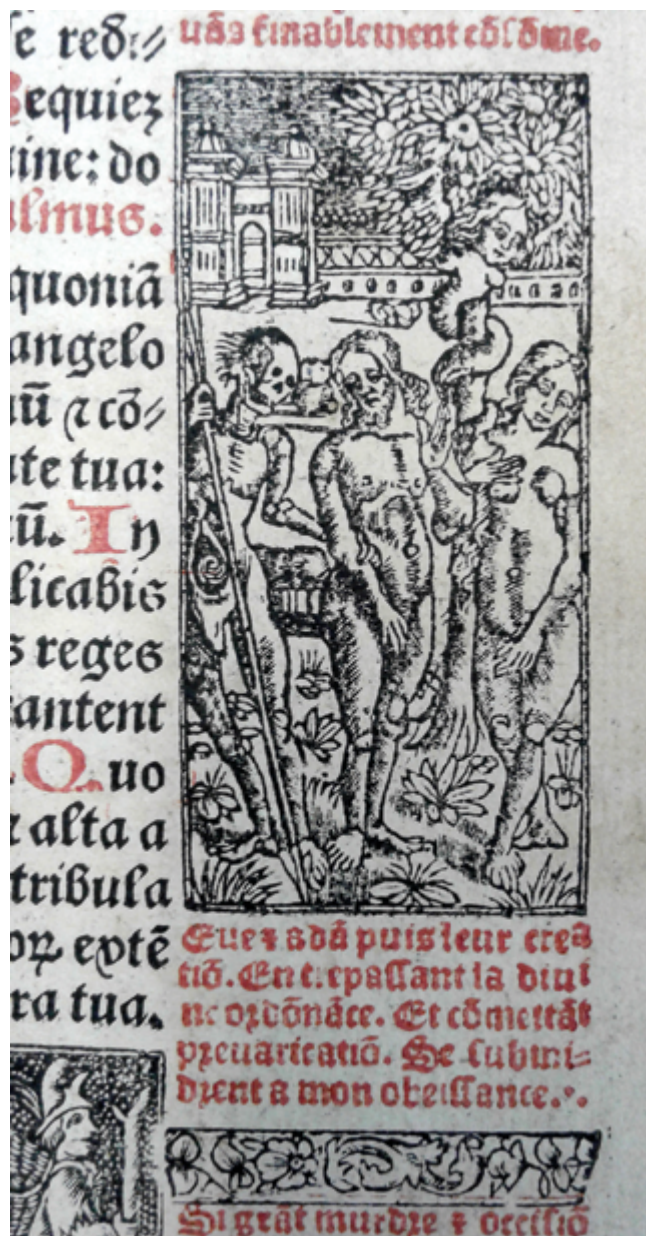 se red:⸗
Sequiez
uine: do
almus.
quoniā
angelo
uū ⁊ cō⸗
ate tua:
uū. In
licabis
s reges
cantent
. Quo
r alta a
tribula
oꝝ extē
ra tua.
uās finablement cōsōme.
Eue ⁊ adā puis leur crea
tiō. En trepassant la diui
ne ordōnāce. Et cōmettāt
preuaricatiō. Se submi⸗
drent a mon obeissance.
Si grāt murdre ⁊ occisiō